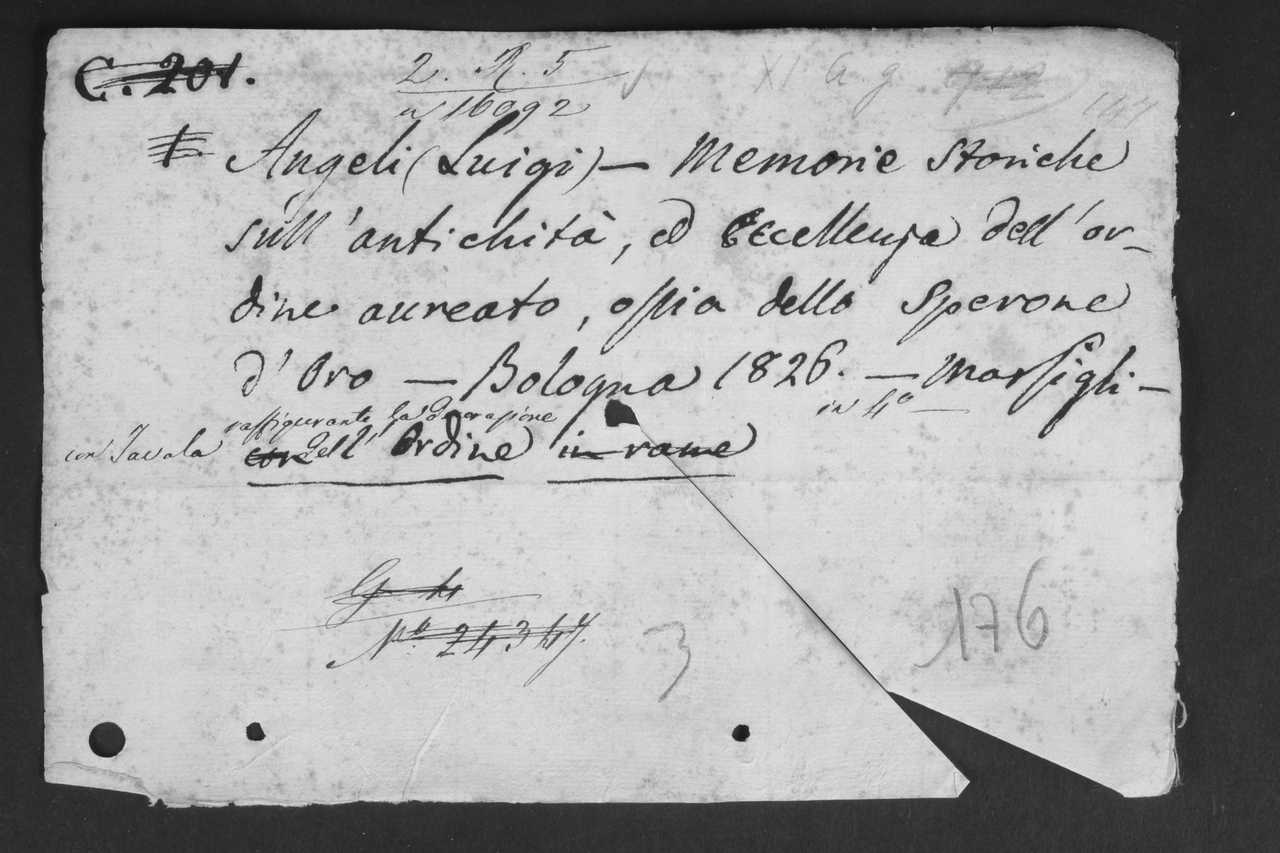 C. 201.
2. R. 5
XI A g
a 16092
147
Angeli (Luigi) — Memorie Storiche
sull'antichità, ed Eccellenza dell'or-
dine aureato, ossia dello Sperone
d'Oro — Bologna 1826. — Marsigli —
in 4°
raffigurante la Decorazione
con Tavola dell'Ordine in rame
N° 24347.
3
176